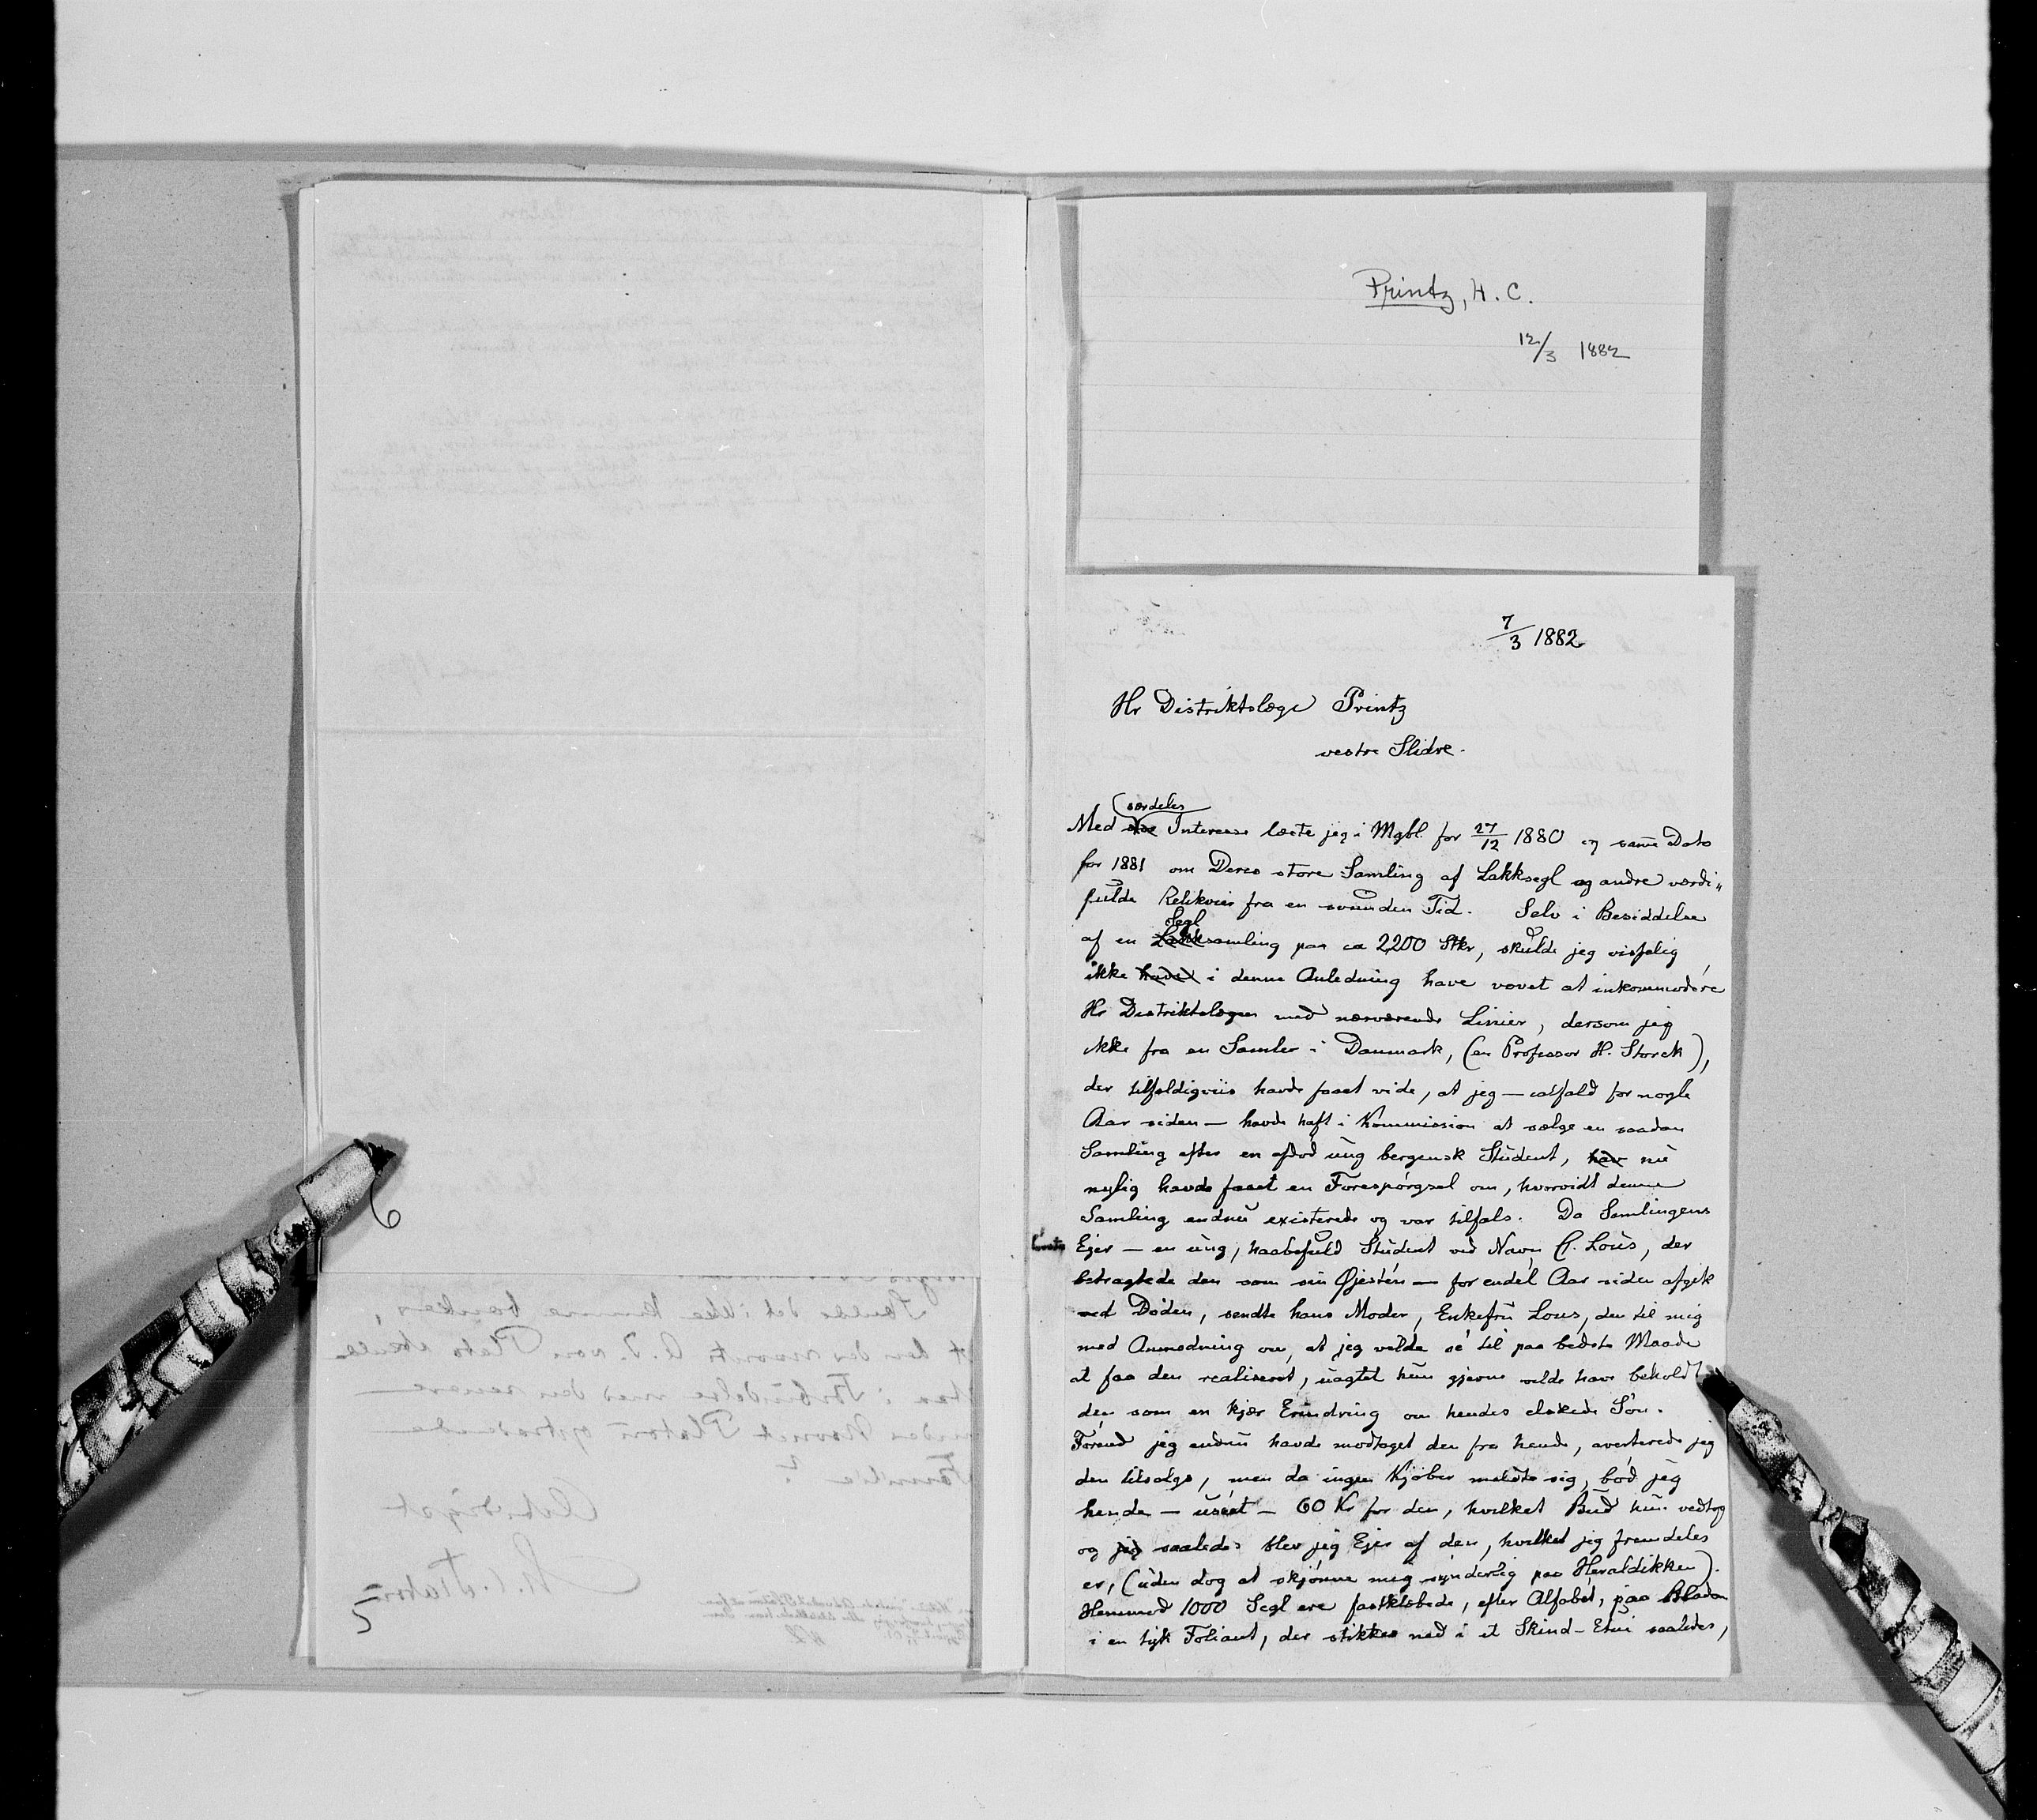 Printz, H. C.
12/3 1882
7/3 1882
Hr Distriktslæge Printz
vestre Slidre.
særdeles
Med stor Interesse læste jeg i Mgbl. for 27/12 1880 og samme Dato
for 1881 om Deres store Samling af Lakksegl og andre værdi„
fulde Relikvier fra en svunden Tid. Selv i Besiddelse
Segl
af en Lakksamling paa ca 2200 Stkr, skulde jeg visselig
ikke have i denne Anledning have vovet at inkommodere
Hr Distriktslægen med nærværende Linier, dersom jeg
ikke fra en Samler i Danmark, (en Professor H. Storck),
der tilfældigviis havde faaet vide, at jeg — ialfald for nogle
Aar siden — havde haft i Kommission at sælge en saadan
Samling efter en afdød ung bergensk Student, har nu
nylig havde faaet en Forespørgsel om, hvorvidt denne
Samling endnu existerede og var tilfals. Da Samlingens
Ejer — en ung, haabefuld Student ved Navn Lous, der
betragtede den som sin Øjestén — for endél Aar siden afgik
ved Døden, sendte hans Moder, Enkefru Lous, den til mig
med Anmodning om, at jeg vilde sé til paa bedste Maade
at faa den realiseret, uagtet hun gjerne vilde have beholdt
den som en kjær Erindring om hendes elskede Søn.
Førend jeg endnu havde modtaget den fra hende, averterede jeg
den tilsalgs, men da ingen Kjøber meldte sig, bød jeg
hende — uséet — 60 Kr for den, hvilket Bud hun vedtog
og jeg saaledes blev jeg Ejer af den, hvilket jeg fremdeles
er, (uden dog at skjønne mig synderlig paa Heraldikken).
Henimod 1000 Segl ere fastklæbede, efter Alfabet, paa Bladene
i en tyk Foliant, der stikkes ned i et Skind-Etui saaledes,
6
5